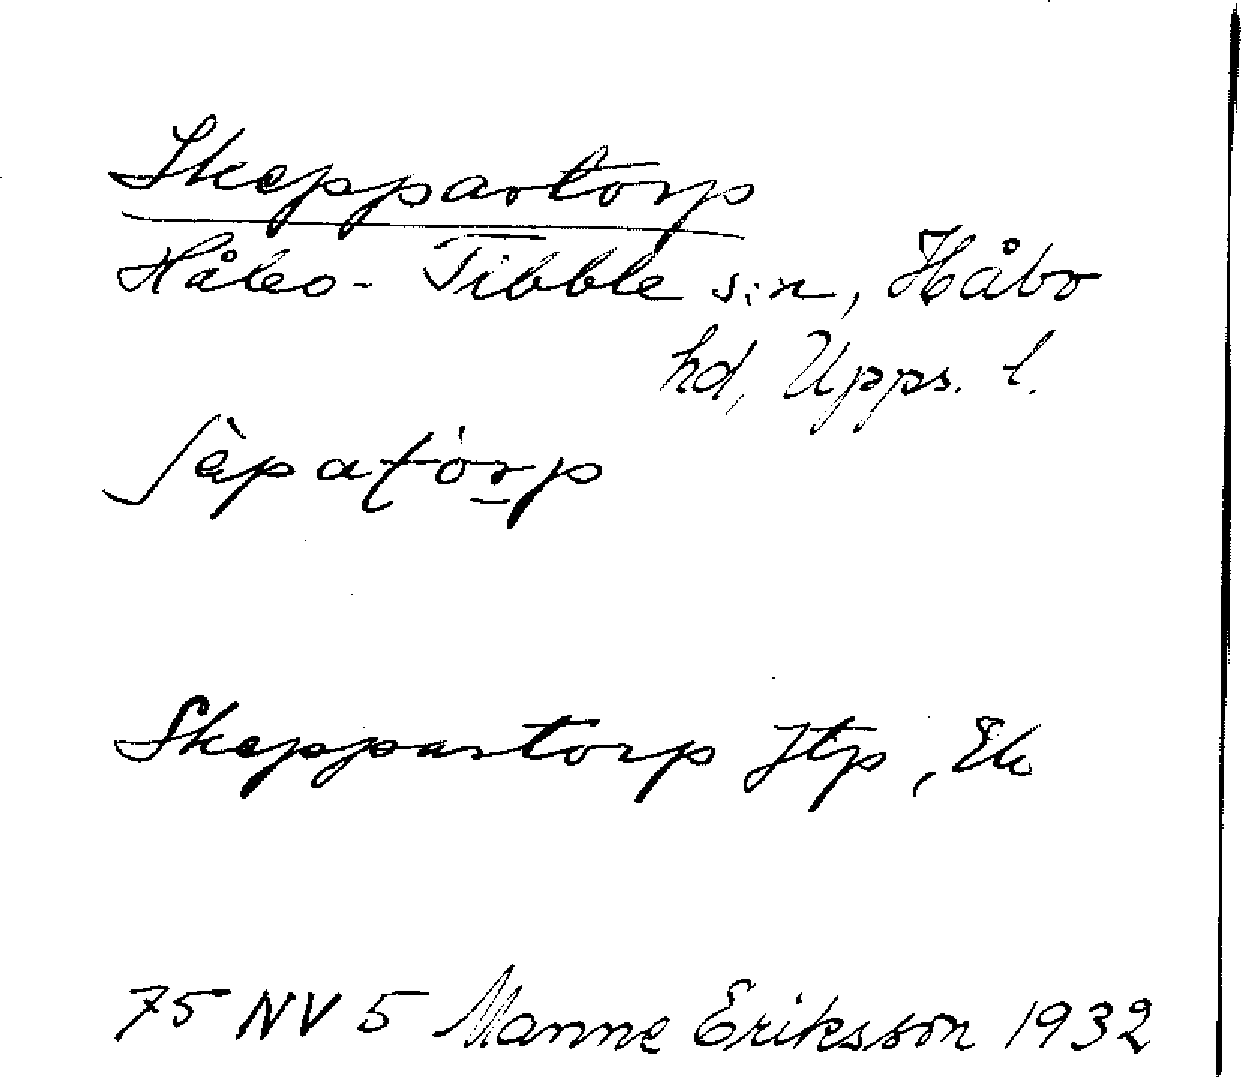 Skeppartorp
Håbo-Tibble s:n, Håbo
hd, Upps. l.
ʃèpatórp
Skeppartorp Jtp, Ek
75 NV 5 Manne Eriksson 1932